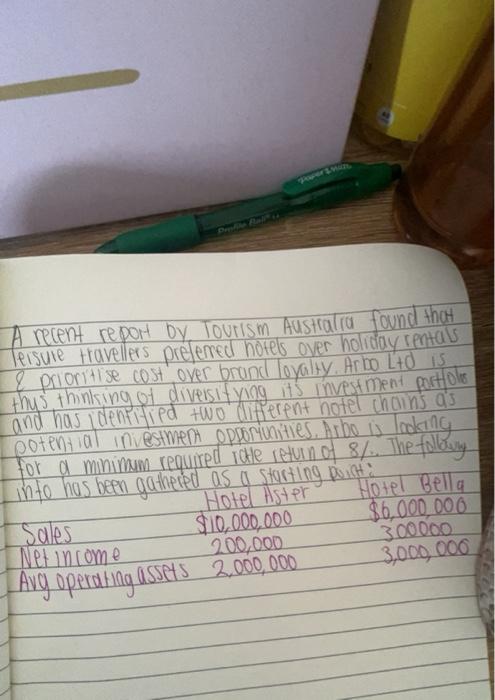 Paper Mate
Profile Ball
A recent report by Tourism Australia found that
leisure travellers preferred hotels over holiday rentals
& prioritise cost over brand loyalty. Arbo Ltd is
thus thinking of diversifying its investment portfolio
and has identified two different hotel chains as
potential investment opportunities. Arbo is looking
for a minimum required rate return of 8%. The following
info has been gathered as a starting point:
Hotel Aster Hotel Bella
Sales $10,000,000 $6,000,000
Net income 200,000 300000
Avg operating assets 2,000,000 3,000,000